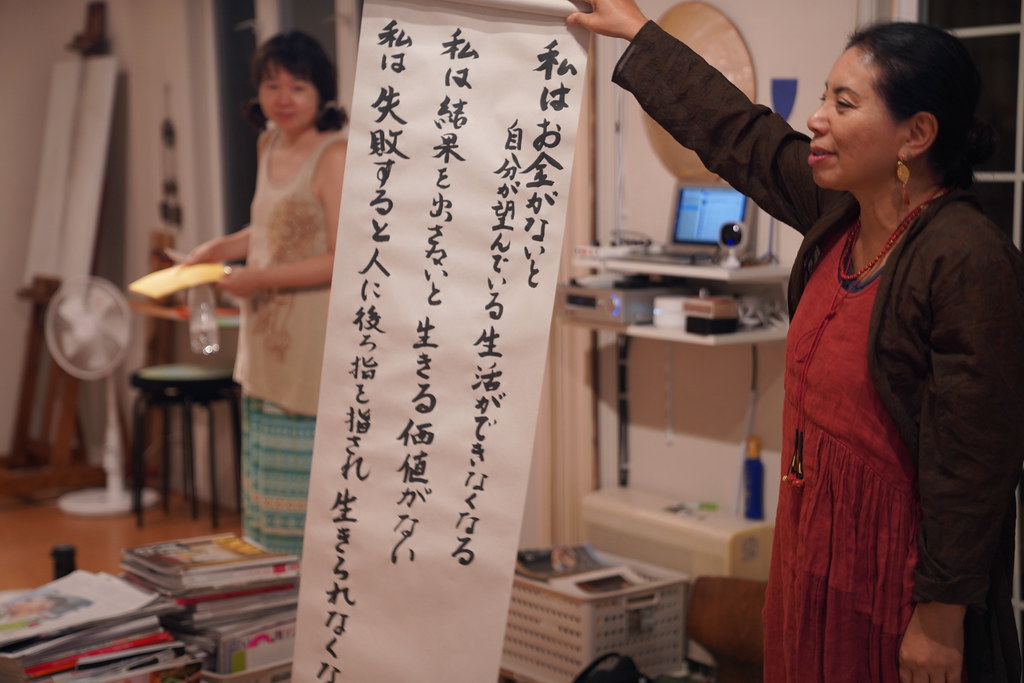 私はお金がないと
自分が望んでいる生活ができなくなる
私は結果を出さないと生きる価値がない
私は失敗すると人に後ろ指を指され生きられなくな